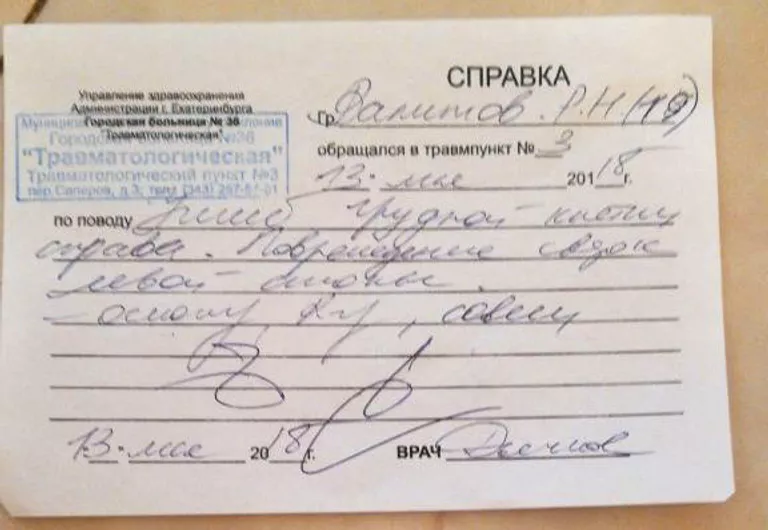 СПРАВКА
Управление здравоохранения
Администрации г. Екатеринбурга
Городская больница № 36
"Травматологическая"
Городская больница №36
"Травматологическая"
Травматологический пункт №3
пер.Саперов, д.3, тел. (343) 257-
гр. Валитов. Р.Н
обращался в травмпункт № 3
13. мая 2018 г.
по поводу Ушиб грудной клетки
справа. Повреждение связок
левой стопы.
- осмотр, Rgr, совет
13. мая 2018 г. ВРАЧ